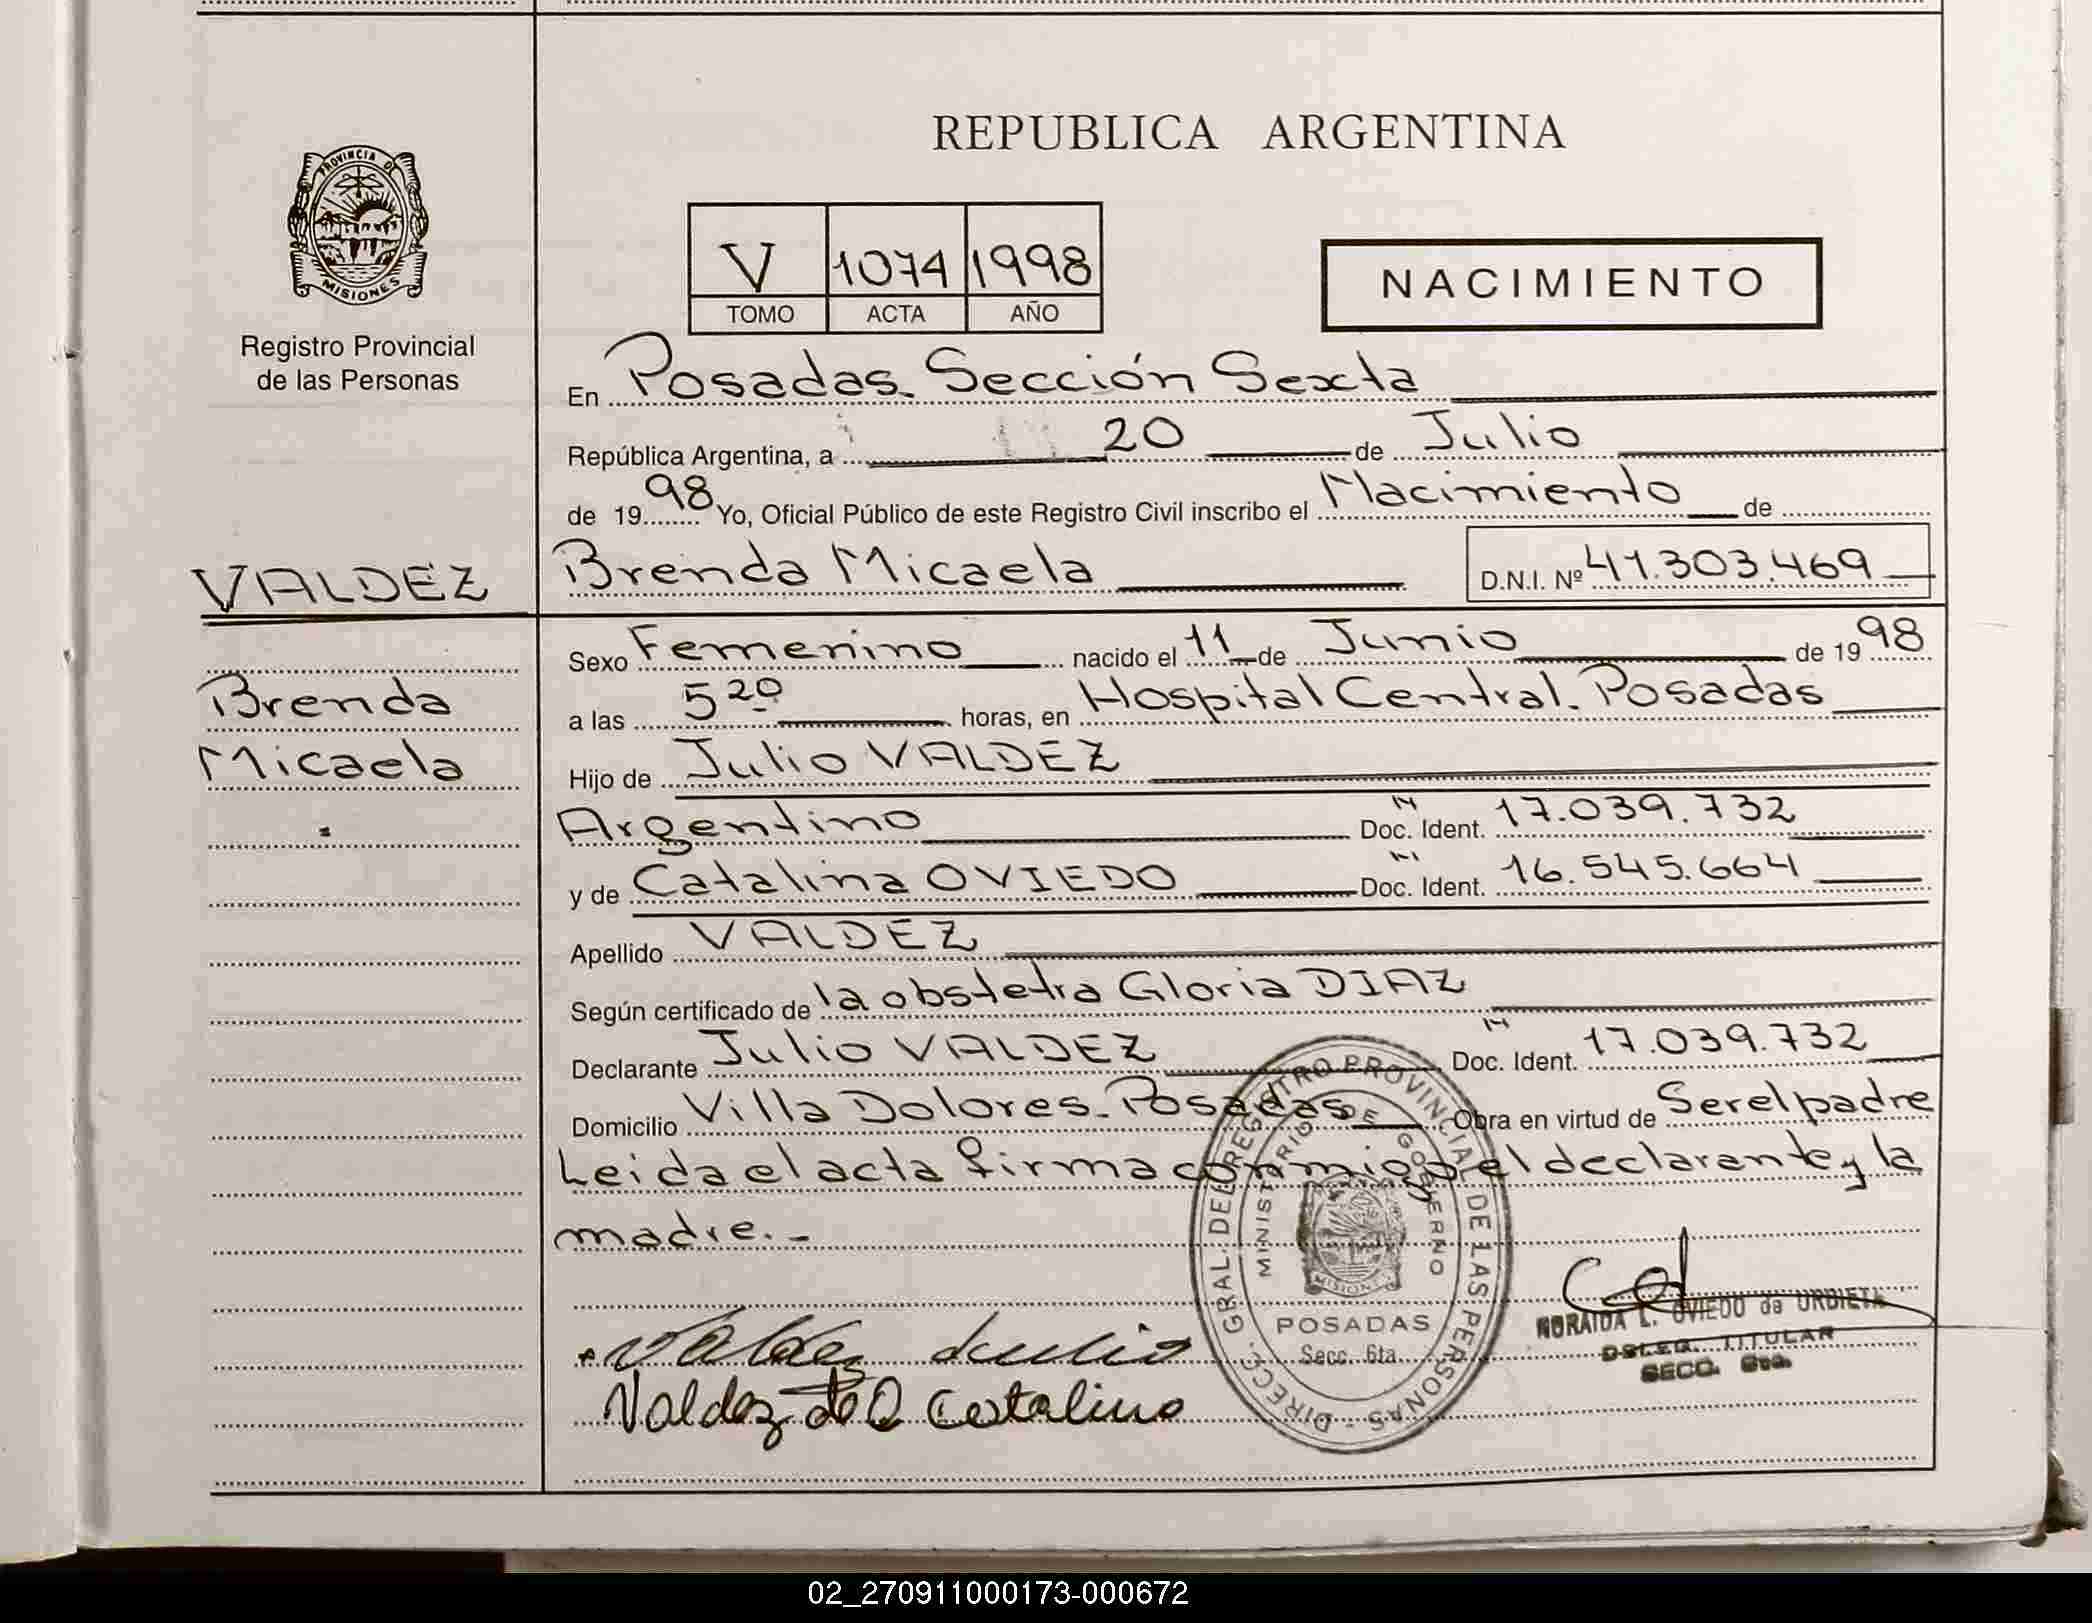 REPUBLICA ARGENTINA
PROVINCIA DE
MISIONES
Registro Provincial
de las Personas
V 1074 1998
TOMO ACTA AÑO
NACIMIENTO
En Posadas. Sección Sexta
República Argentina, a 20 de Julio
de 1998 Yo, Oficial Público de este Registro Civil inscribo el Nacimiento de
VALDEZ Brenda Micaela D.N.I. Nº 41.303.469
Sexo Femenino nacido el 11 de Junio de 1998
Brenda a las 5 20 horas, en Hospital Central. Posadas
Micaela Hijo de Julio VALDEZ
Argentino Doc. Ident. 17.039.732
y de Catalina OVIEDO Doc. Ident. 16.545.664
Apellido VALDEZ
Según certificado de la obstetra Gloria DIAZ
Declarante Julio VALDEZ Doc. Ident. 17.039.732
Domicilio Villa Dolores. Posadas Obra en virtud de Ser el padre
Leida el acta firma conmigo el declarante y la
madre.-
DIRECC. GRAL. DEL REGISTRO PROVINCIAL DE LAS PERSONAS -
MINISTERIO DE GOBIERNO
MISIONES
POSADAS
Secc. 6ta.
Valdez Julio
Valdez de O Catalina
L. OVIEDO de URBIETA
DELEG. TITULAR
SECC. 6ta.
02_270911000173-000672